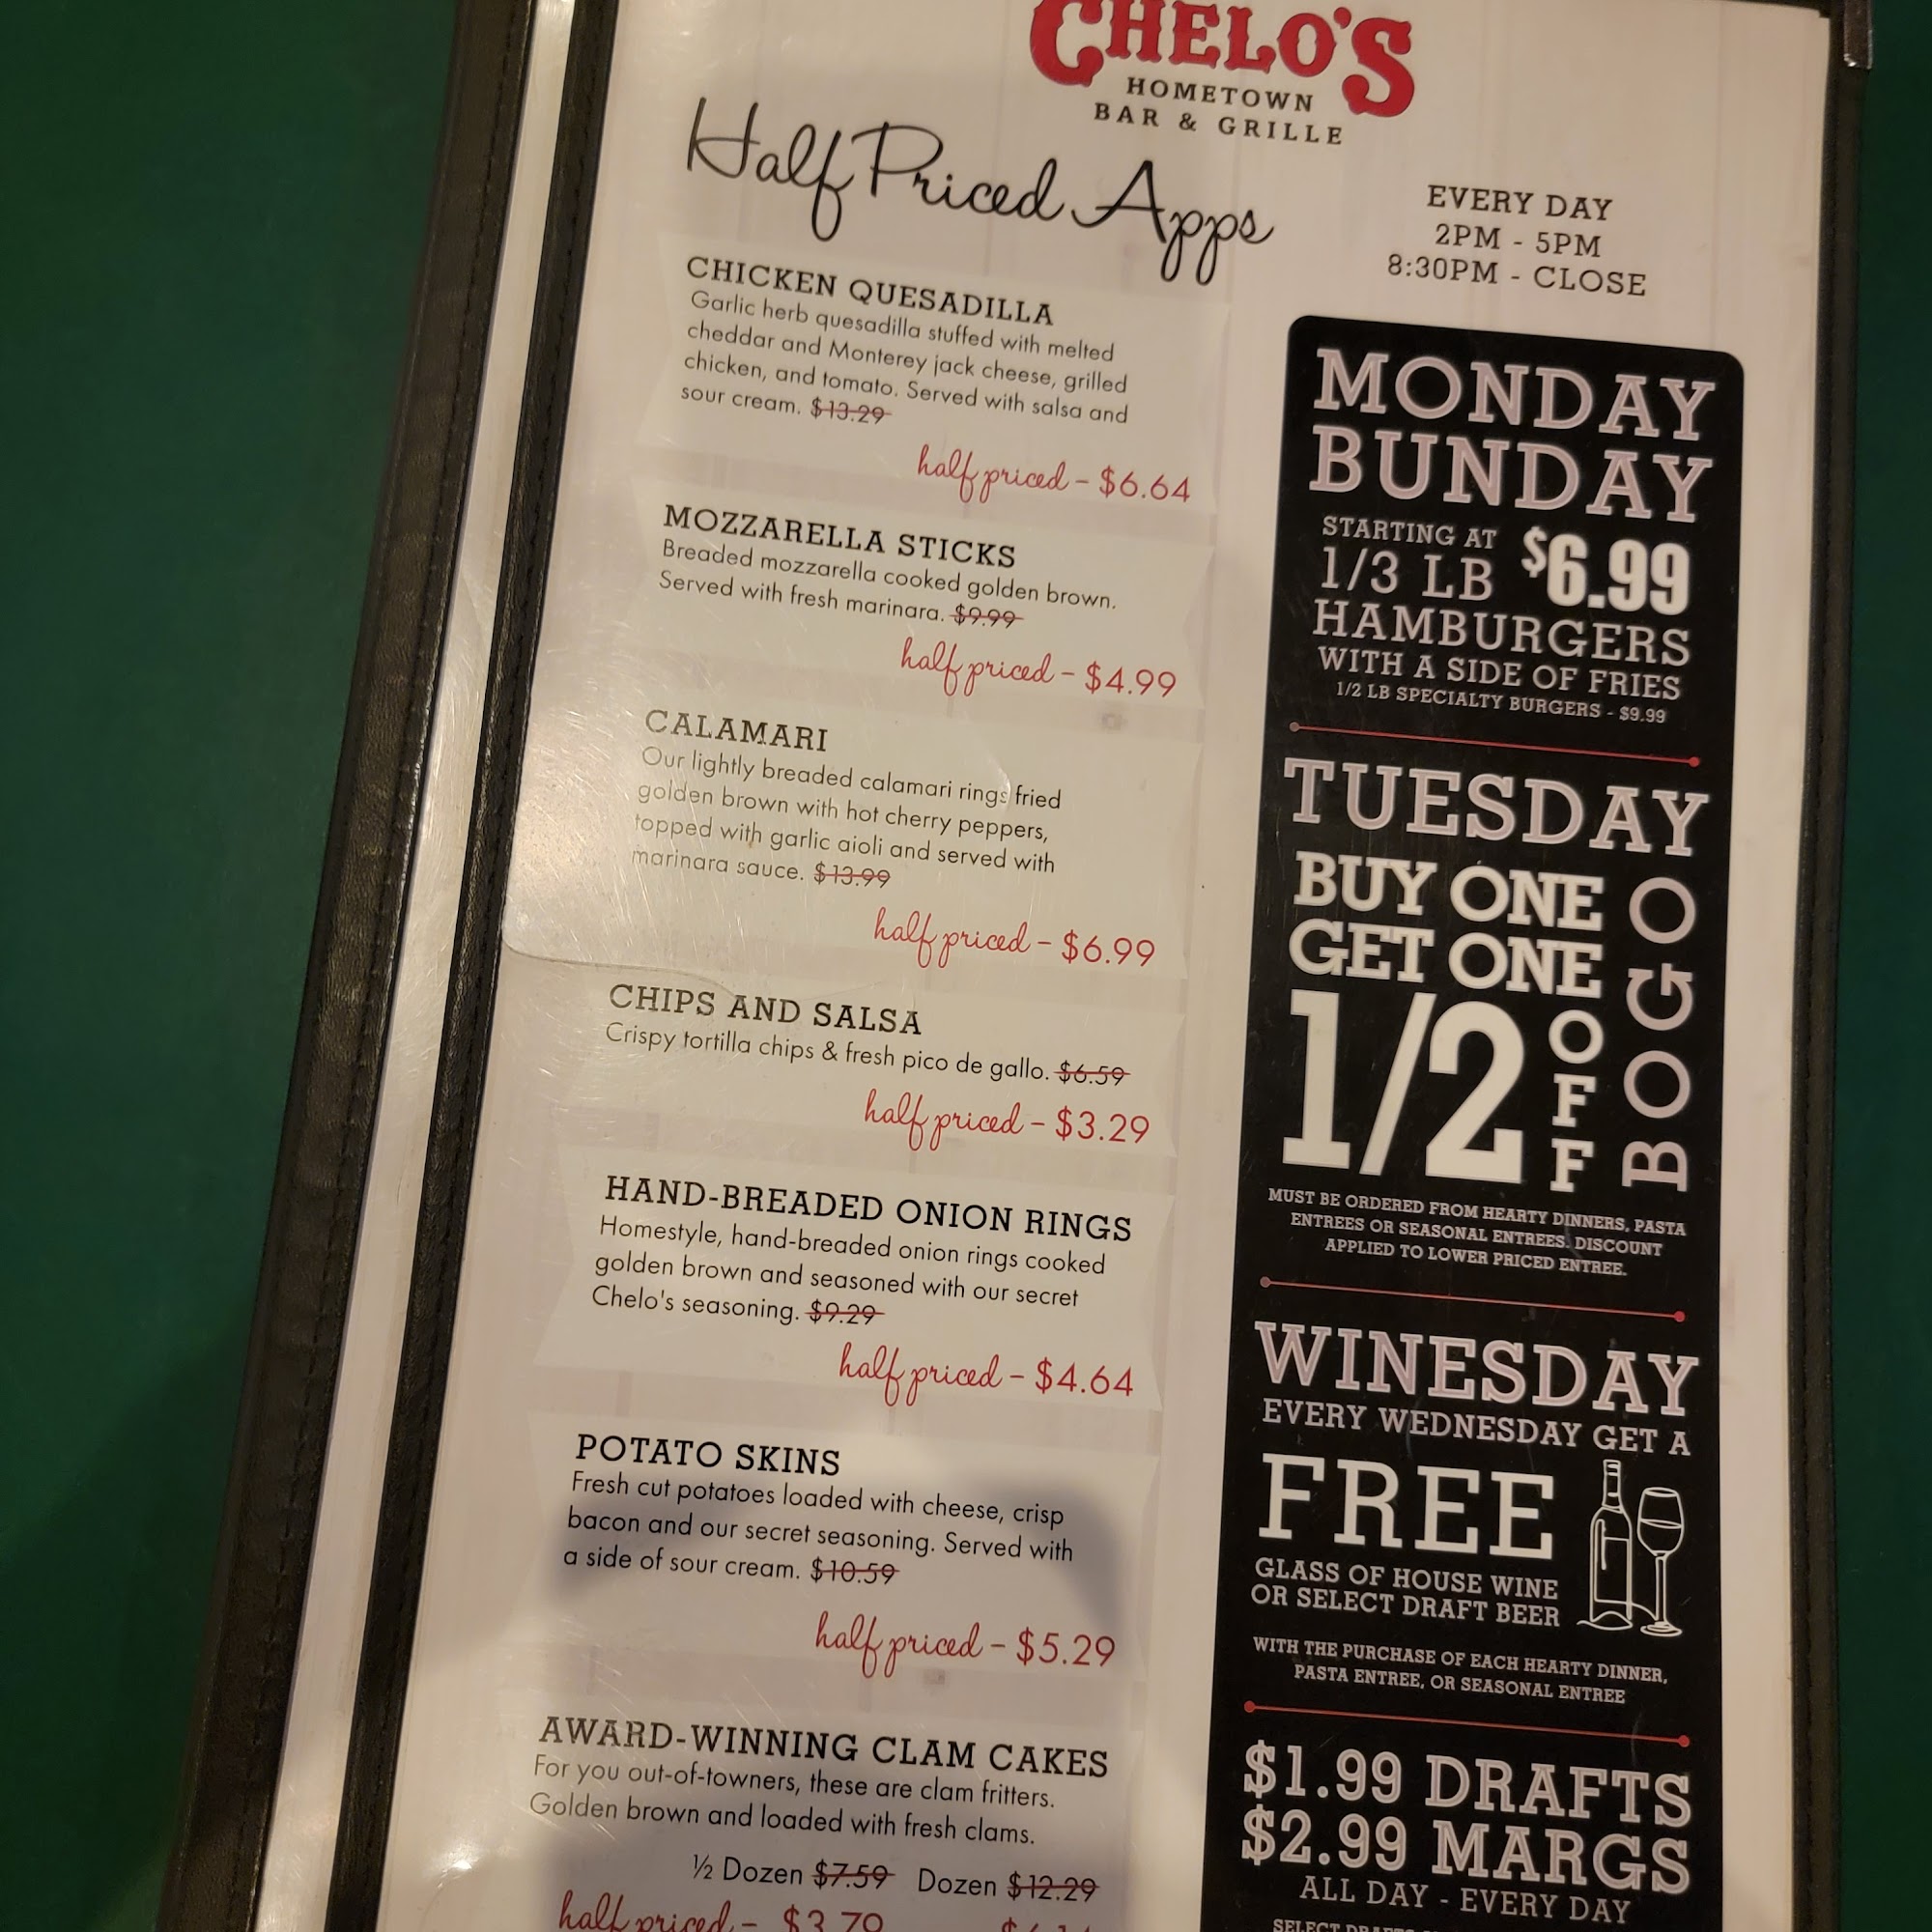 CHELO'S
HOMETOWN
BAR & GRILLE
Half Priced Apps
EVERY DAY
2PM - 5PM
8:30PM - CLOSE
CHICKEN QUESADILLA
Garlic herb quesadilla stuffed with melted
cheddar and Monterey jack cheese, grilled
chicken, and tomato. Served with salsa and
sour cream. $13.29
half priced - $6.64
MOZZARELLA STICKS
Breaded mozzarella cooked golden brown.
Served with fresh marinara. $9.99
half priced - $4.99
CALAMARI
Our lightly breaded calamari rings fried
golden brown with hot cherry peppers,
topped with garlic aioli and served with
marinara sauce. $13.99
half priced - $6.99
CHIPS AND SALSA
Crispy tortilla chips & fresh pico de gallo. $6.59
half priced - $3.29
HAND-BREADED ONION RINGS
Homestyle, hand-breaded onion rings cooked
golden brown and seasoned with our secret
Chelo's seasoning. $9.29
half priced - $4.64
POTATO SKINS
Fresh cut potatoes loaded with cheese, crisp
bacon and our secret seasoning. Served with
a side of sour cream. $10.59
half priced - $5.29
AWARD-WINNING CLAM CAKES
For you out-of-towners, these are clam fritters.
Golden brown and loaded with fresh clams.
½ Dozen $7.59 Dozen $12.29
half priced - $3.79
MONDAY
BUNDAY
STARTING AT $6.99
1/3 LB
HAMBURGERS
WITH A SIDE OF FRIES
1/2 LB SPECIALTY BURGERS - $9.99
TUESDAY
BUY ONE
GET ONE
1/2 OFF
BOGO
MUST BE ORDERED FROM HEARTY DINNERS, PASTA
ENTREES OR SEASONAL ENTREES. DISCOUNT
APPLIED TO LOWER PRICED ENTREE.
WINESDAY
EVERY WEDNESDAY GET A
FREE
GLASS OF HOUSE WINE
OR SELECT DRAFT BEER
WITH THE PURCHASE OF EACH HEARTY DINNER,
PASTA ENTREE, OR SEASONAL ENTREE
$1.99 DRAFTS
$2.99 MARGS
ALL DAY - EVERY DAY